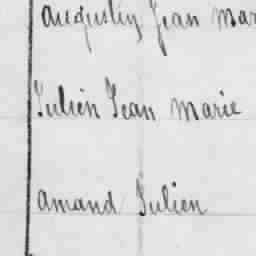 Augustin Jean Mar
Julien Jean Marie
Amand Julien